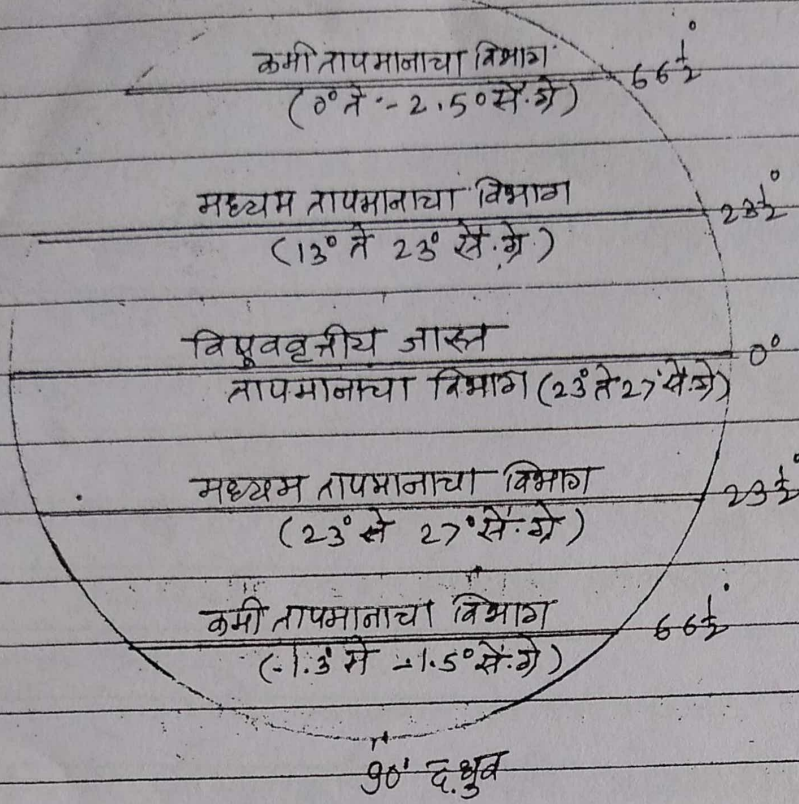 कमी तापमानाचा विभाग
(0° ते -2.5० सें.ग्रे)
66½°
मध्यम तापमानाचा विभाग
(13° ते 23° सें.ग्रे.)
23½°
विषुववृत्तीय जास्त
0°
तापमानाचा विभाग (23° ते 27° सें.ग्रे)
मध्यम तापमानाचा विभाग
(23° से 27° सें.ग्रे)
23½°
कमी तापमानाचा विभाग
(-1.3° से -1.5° सें.ग्रे)
66½°
90° द.ध्रुव